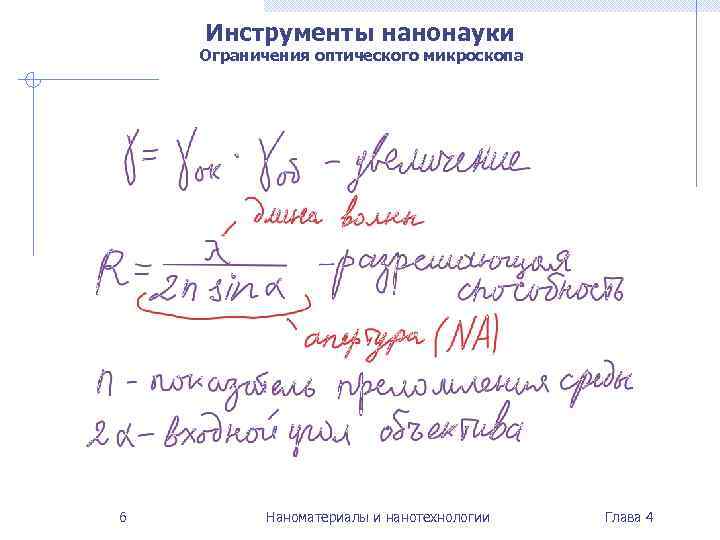 Инструменты нанонауки
Ограничения оптического микроскопа
γ = γок · γоб – увеличение
длина волны
R = λ / 2n sin α – разрешающая
способность
апертура (NA)
n – показатель преломления среды
2α – входной угол объектива
6 Наноматериалы и нанотехнологии Глава 4